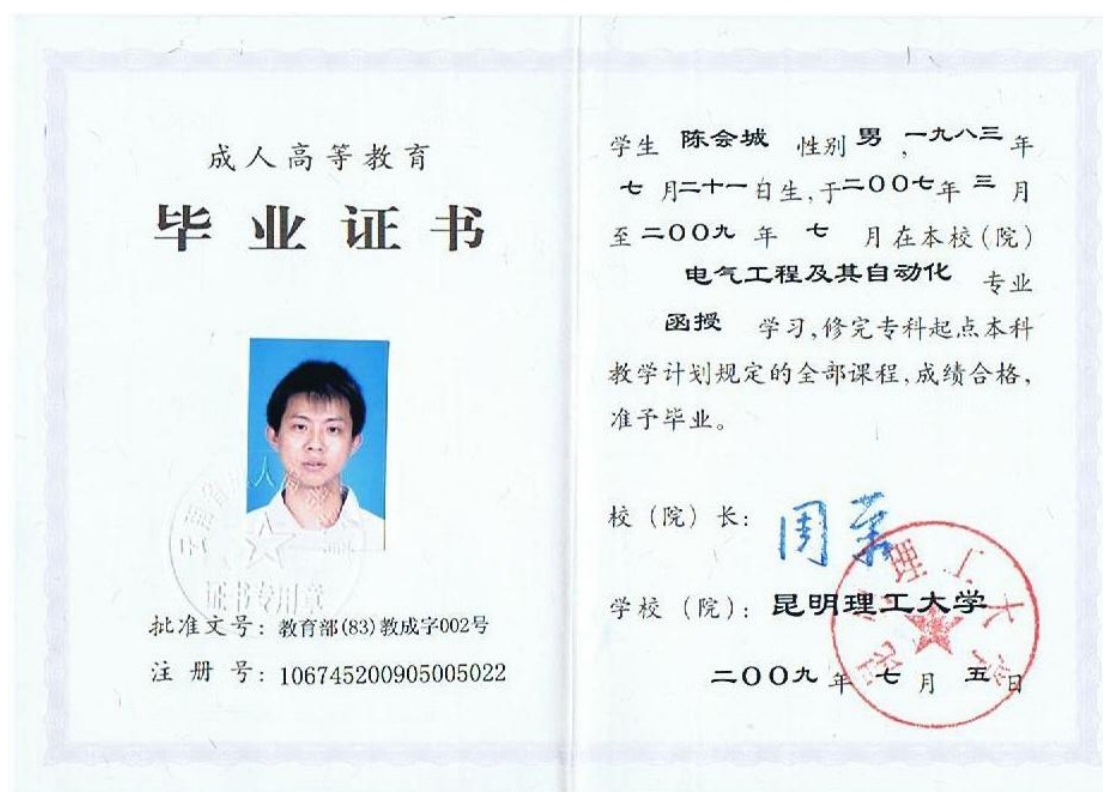 成人高等教育
毕业证书
证书专用章
批准文号：教育部(83)教成字002号
注 册 号：106745200905005022
学生 陈会城 性别 男，一九八三年
七月二十一日生，于二00七年 三 月
至二00九 年 七 月在本校（院）
电气工程及其自动化 专业
函授 学习，修完专科起点本科
教学计划规定的全部课程，成绩合格，
准予毕业。
校（院）长：周荣
学校（院）：昆明理工大学
理工大
二00九 年 七 月 五 日